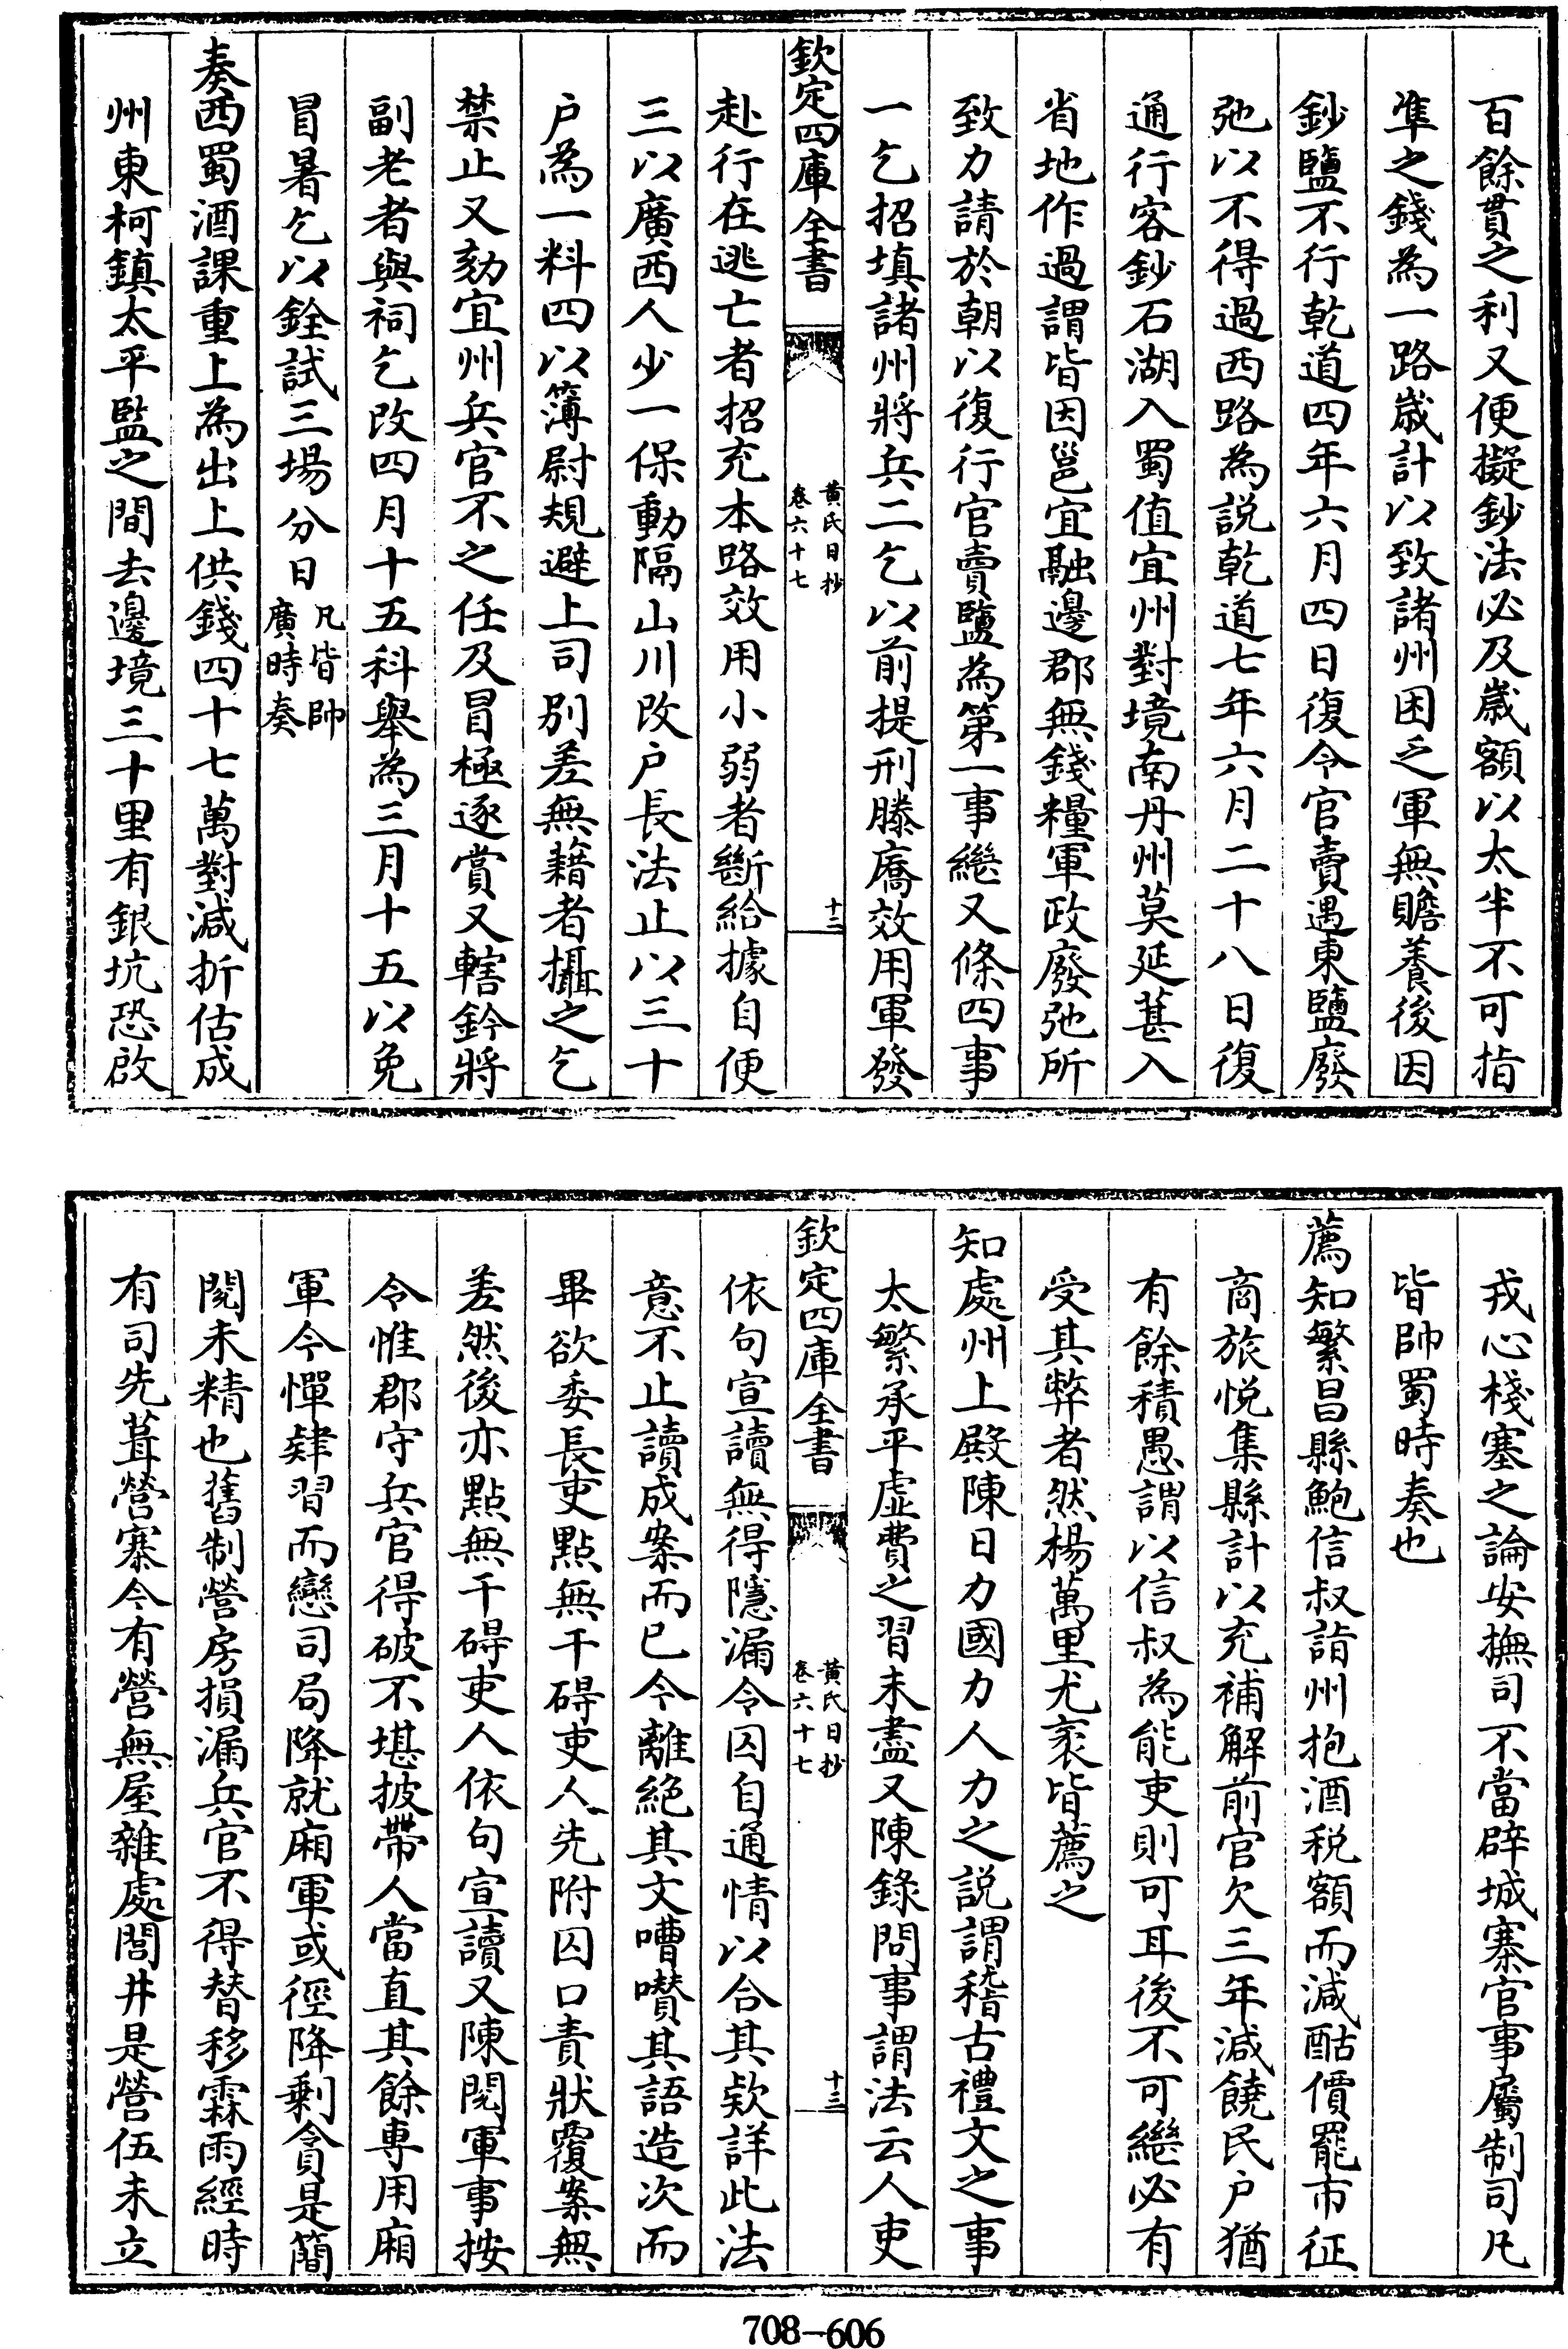 百餘貫之利又便擬鈔法必及歲額以太半不可指
準之錢為一路歲計以致諸州困乏軍無贍養後因
鈔鹽不行乾道四年六月四日復令官賣遇東鹽廢
弛以不得過西路為説乾道七年六月二十八日復
通行客鈔石湖入蜀值宜州對境南丹州莫延葚入
省地作過謂皆因邕宜融邊郡無錢糧軍政廢弛所
致力請於朝以復行官賣鹽為第一事繼又條四事
一乞招填諸州將兵二乞以前提刑滕㢗效用軍發
欽定四庫全書
黄氏日抄
卷六十七
十二
赴行在逃亡者招充本路效用小弱者斷給據自便
三以廣西人少一保動隔山川改户長法止以三十
户為一料四以簿尉規避上司别差無藉者攝之乞
禁止又劾宜州兵官不之任及冒極逐賞又轄鈐將
副老者與祠乞改四月十五科舉為三月十五以免
冒暑乞以銓試三場分日凡皆帥
廣時奏
奏西蜀酒課重上為出上供錢四十七萬對減折估成
州東柯鎮太平監之間去邊境三十里有銀坑恐啟
戎心棧塞之論安撫司不當辟城寨官事屬制司凡
皆帥蜀時奏也
薦知繁昌縣鮑信叔詣州抱酒税額而減酤價罷市征
商旅悦集縣計以充補解前官欠三年減饒民户猶
有餘積愚謂以信叔為能吏則可耳後不可繼必有
受其弊者然楊萬里尤袤皆薦之
知處州上殿陳日力國力人力之説謂稽古禮文之事
太繁承平虛費之習未盡又陳錄問事謂法云人吏
欽定四庫全書
黄氏日抄
卷六十七
十三
依句宣讀無得隱漏令囚自通情以合其欵詳此法
意不止讀成案而已今離絶其文嘈囋其語造次而
畢欲委長吏點無干碍吏人先附囚口責狀覆案無
差然後亦點無干碍吏人依句宣讀又陳閲軍事按
令惟郡守兵官得破不堪披帶人當直其餘専用廂
軍今憚肄習而戀司局降就廂軍或徑降剩員是簡
閲未精也舊制營房損漏兵官不得替移霖雨經時
有司先葺營寨今有營無屋雜處閭井是營伍未立
708-606